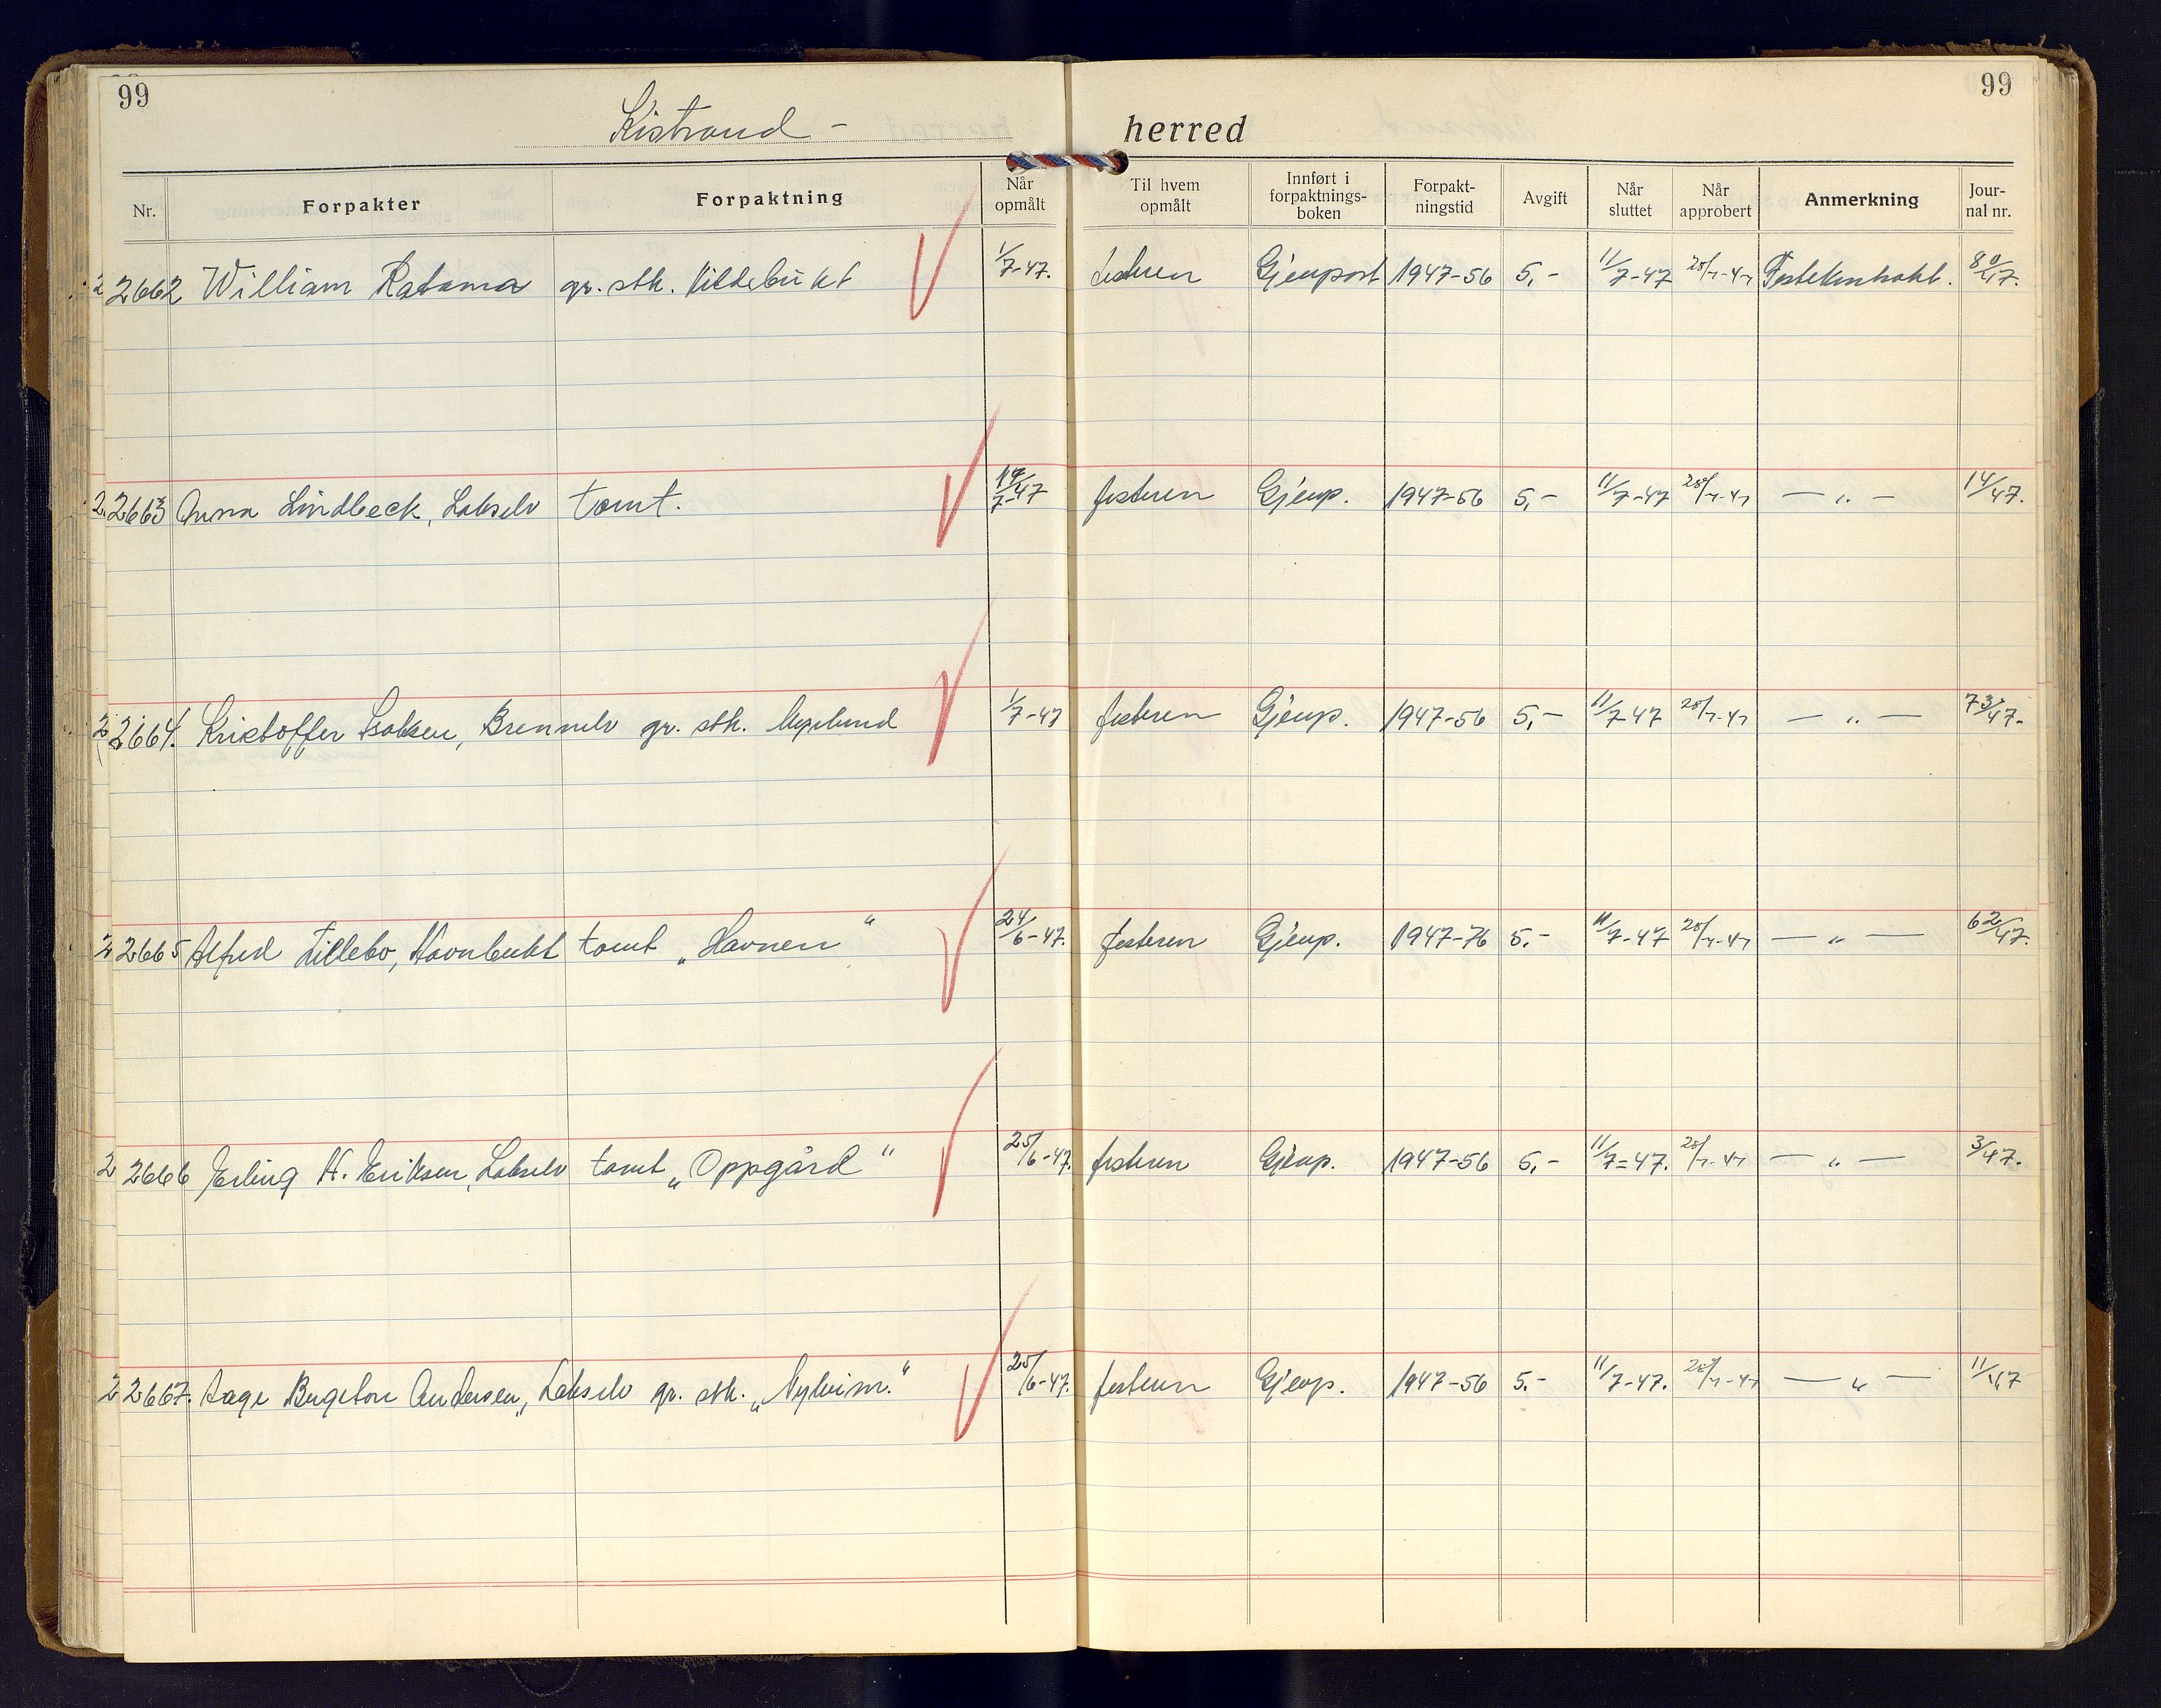 99
99
Kistrand - herred
Nr. Forpakter Forpaktning Når opmålt Til hvem opmålt Innført i forpaktnings-boken Forpakt-ningstid Avgift Når sluttet Når approbert Anmerkning Jour-nal nr.
2662 William Ratama gr. stk. 1/7-47. festeren Gjenpart 1947-56 5,- 11/7-47 Festekontrakt. 80/47.
2663 Anna Lindbeck, Lakselv tomt. 7-47 festeren Gjenp. 1947-56 5,- 11/7-47 — " — 14/47.
2664. Kristoffer Isaksen, Brennelv gr. stk. 1/7-47 festeren Gjenp. 1947-56 5,- 11/7-47 — " — 73/47.
2665 Alfred Lillebo, Havnbukt tomt „Havnen" 24/6-47. festeren Gjenp. 1947-76 5.- 11/7-47 — " — 62/47.
2666 Erling H. Eriksen, Lakselv tomt „Oppgård" 25/6-47. festeren Gjenp. 1947-56 5,- 11/7-47. — " — 3/47.
2667. Aage Andersen, Lakselv gr. stk. „Nyheim." 25/6-47. festeren Gjenp. 1947-56 5.- 11/7-47. — " — 11/47